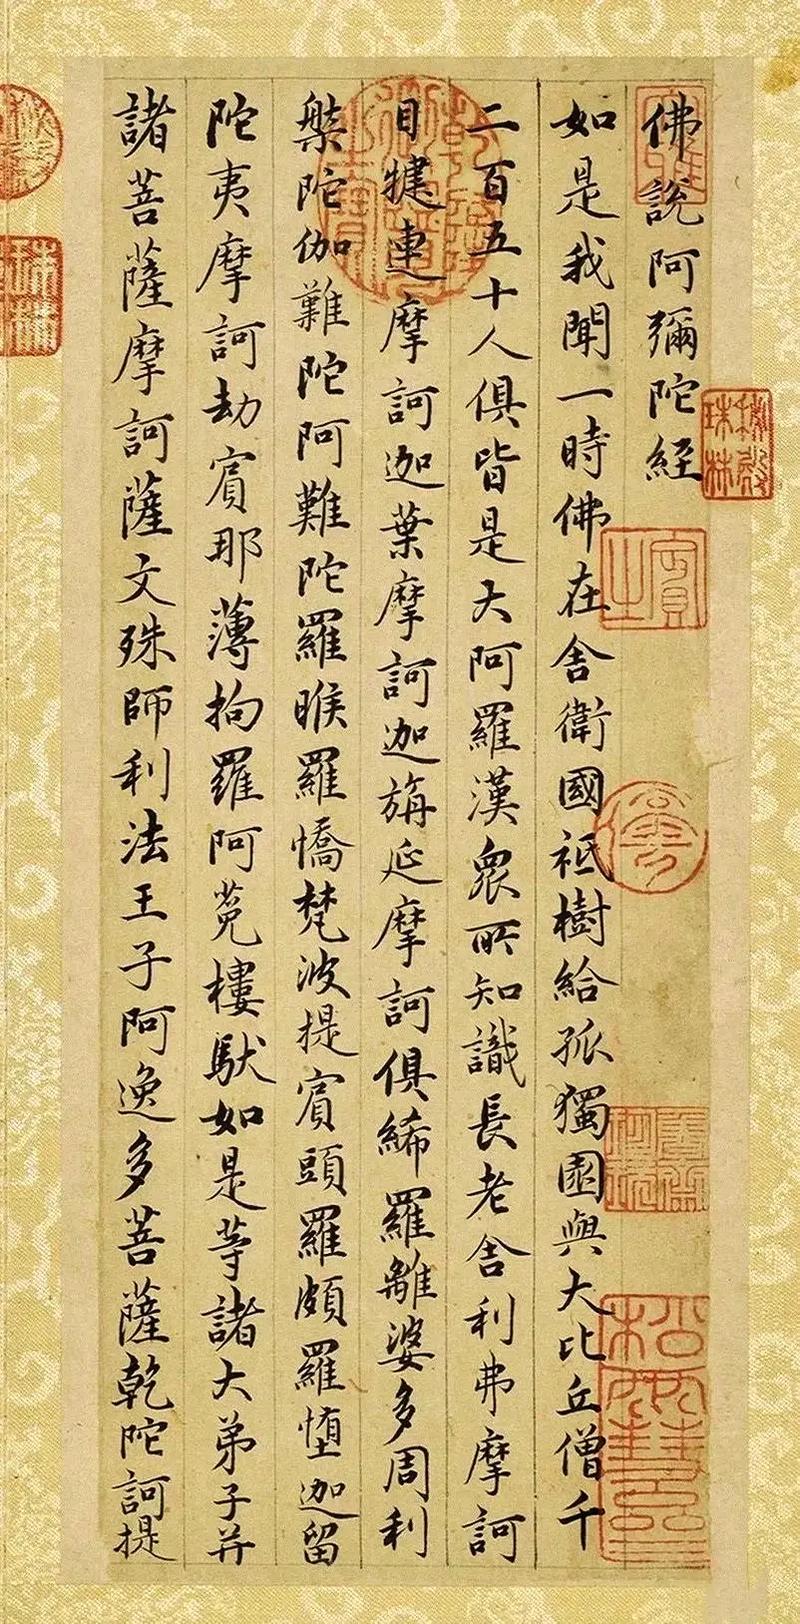 佛說阿彌陀經
如是我聞一時佛在舍衛國祇樹給孤獨園與大比丘僧千
二百五十人俱皆是大阿羅漢眾所知識長老舍利弗摩訶
目犍連摩訶迦葉摩訶迦旃延摩訶俱絺羅離婆多周利
槃陀伽難陀阿難陀羅睺羅憍梵波提賓頭羅頗羅墮迦留
陀夷摩訶劫賓那薄拘羅阿㝹樓馱如是等諸大弟子并
諸菩薩摩訶薩文殊師利法王子阿逸多菩薩乾陀訶提
秘殿珠林